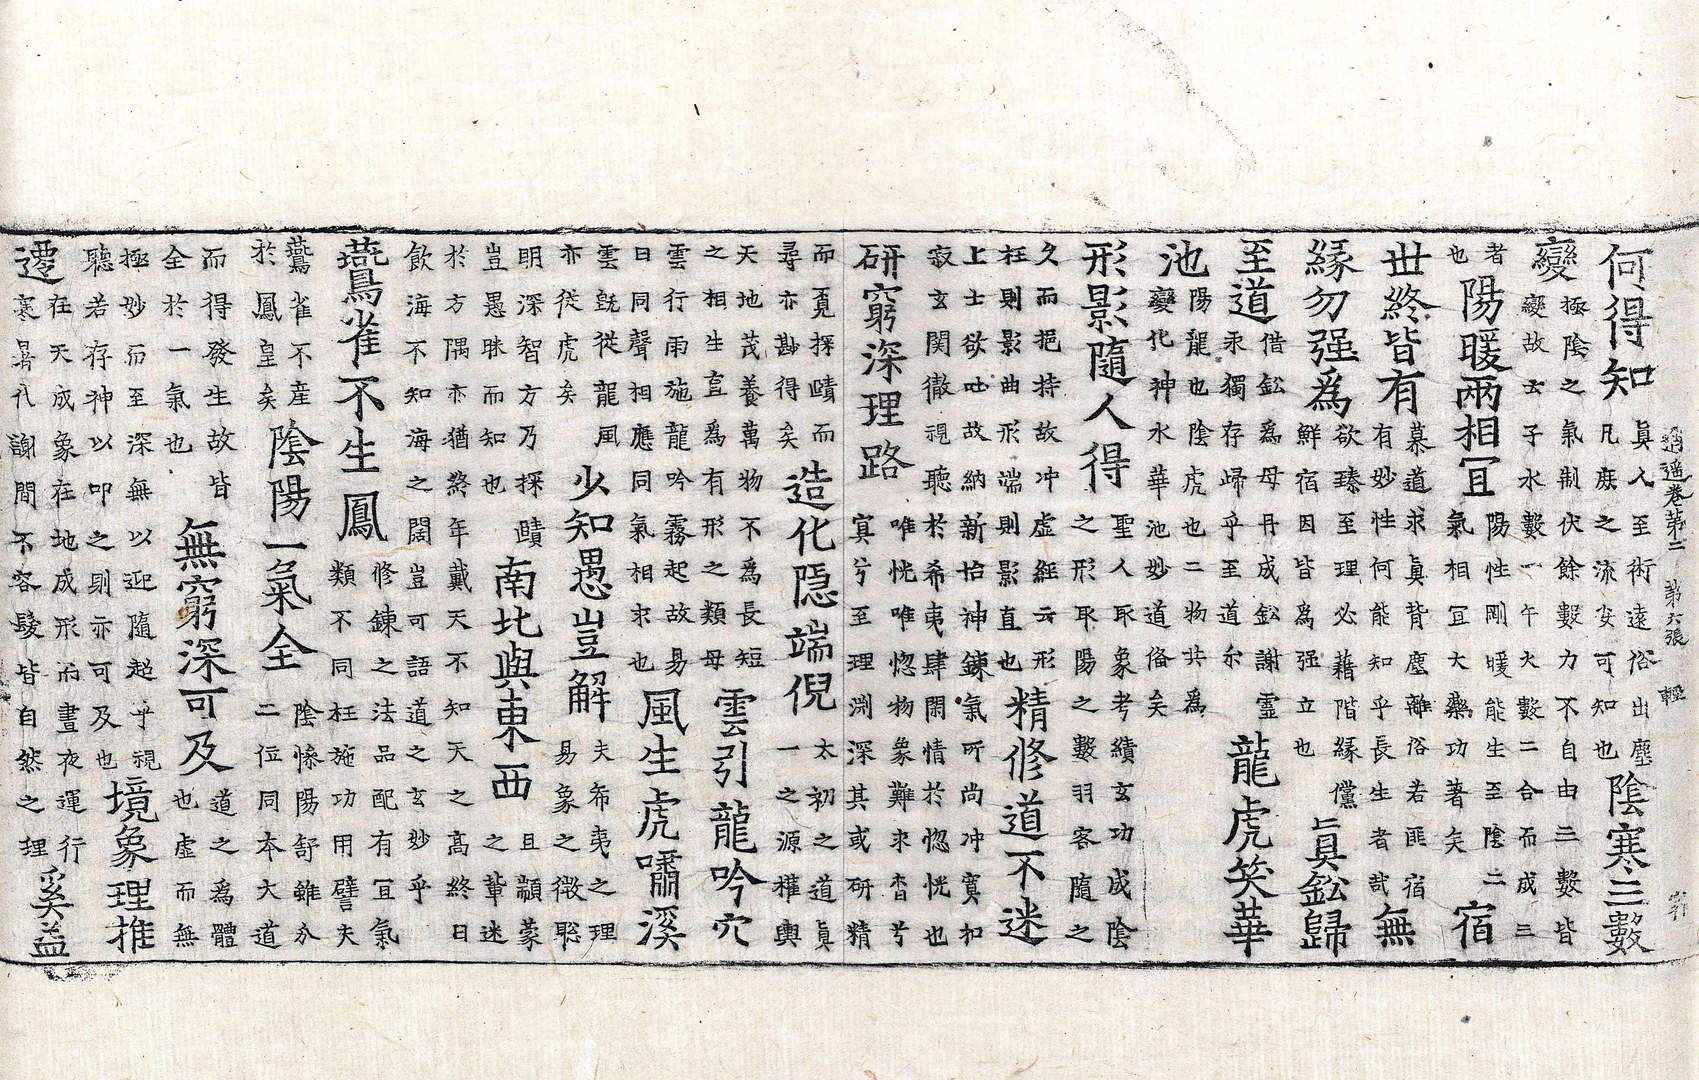 逍遥卷第二 第六張 輕
何得知 眞人至術遠俗出塵
凡庶之流安可知也 陰寒三數
變 極陰之氣制伏餘數力不自由三數皆
變故云子水數一午火數二合而成三
者
也 陽暖兩相冝 陽性剛暖能生至陰二
氣相冝大藥功著矣 宿
世終皆有 慕道求眞背塵離俗若匪宿
有妙性何能知乎長生者哉 無
緣勿强爲 欲臻至理必藉階緣儻
鮮宿因皆爲强立也 眞鈆歸
至道 借鈆爲母丹成鈆謝靈
汞獨存歸乎至道尒 龍虎笑華
池 陽龍也陰虎也二物共為
變化神水華池妙道俻矣
形影隨人得 聖人取象考績玄功成陰
之形取陽之數羽客隨之
久而挹持故冲虛經云形
枉則影曲形端則影直也 精修道不迷
上士欲吐故納新怡神鍊氣所尚冲寞扣
寂玄関徹視聽於希夷肆閑情於惚恍也
研窮深理路 唯恍唯惚物象難求杳兮
寞兮至理渊深其或研精
而覓探賾而
尋亦尠得矣 造化隱端倪 太初之道眞
一之源權輿
天地茂養萬物不為長短
之相生豈為有形之類母 雲引龍吟穴
雲行雨施龍吟霧起故易
曰同聲相應同氣相求也 風生虎嘯溪
雲旣從龍風
亦從虎矣 少知愚豈解 夫希夷之理
易象之微聡
明深智方乃探賾
豈愚昧而知也 南北與東西 且顓蒙
之輩迷
於方隅亦猶終年戴天不知天之髙終日
飲海不知海之闊豈可語道之玄妙乎
鷰雀不生鳳 修鍊之法品配有冝氣
類不同枉施功用譬夫
鷰雀不產
於鳳皇矣 陰陽一氣全 陰慘陽舒雖分
二位同夲大道
而得發生故皆
全於一氣也 無窮深可及 道之為體
也虛而無
極妙而至深無以迎隨起乎視
聽若存神以叩之則亦可及也 境象理推
遷 在天成象在地成形而晝夜運行
寒暑代謝間不容髮皆自然之理 奚益